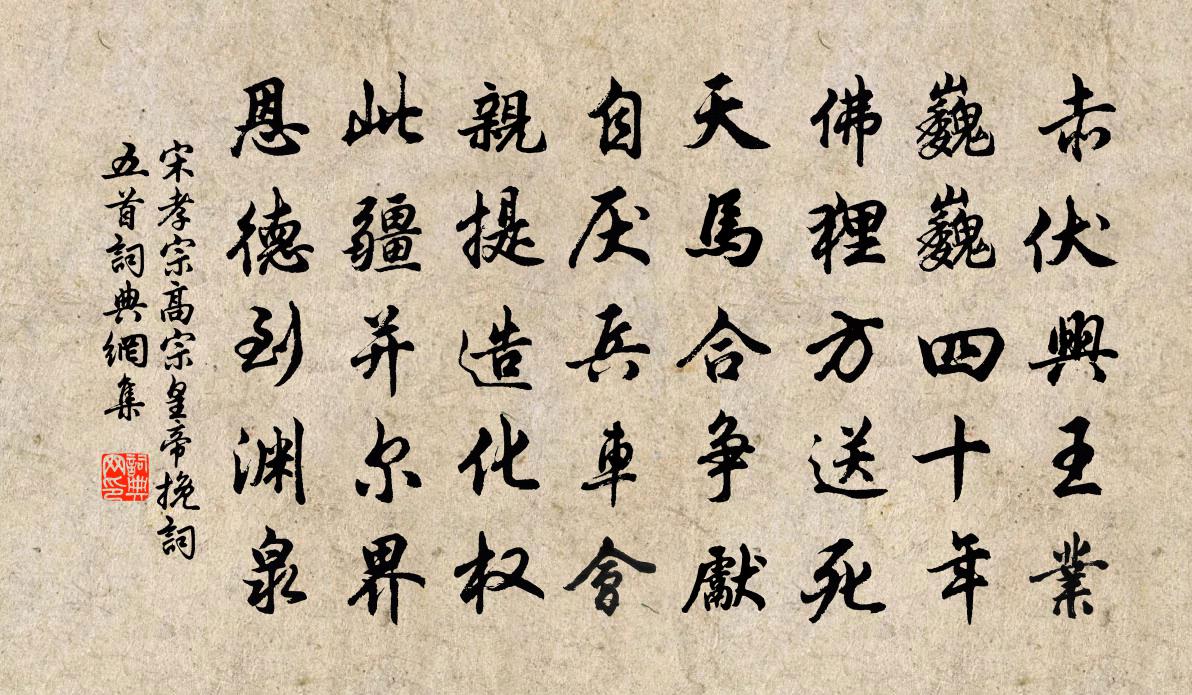 赤伏興王業
巍巍四十年
佛狸方送死
天馬合争獻
自厌兵車會
親提造化权
此疆并尔界
恩德到渊泉
宋孝宗高宗皇帝挽詞
五首詞典網集
詞典网印